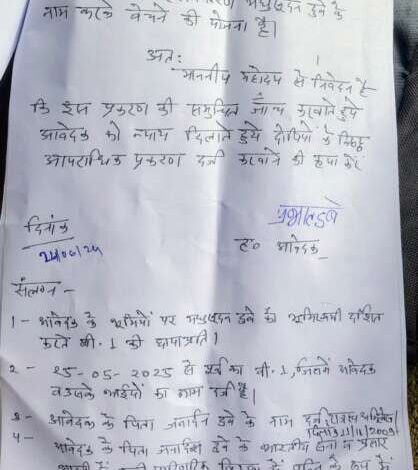 नाम करके बेचने की योजना है।
अत:
माननीय महोदय से निवेदन है
कि इस प्रकरण की समुचित जाँच करवाते हुये
आवेदक को न्याय दिलाते हुये दोषियों के विरुद्ध
आपराधिक प्रकरण दर्ज करवाने की कृपा करें
दिनांक
24/06/24
ह० आवेदक
संलग्न -
1 - आवेदक के भूमियों पर मधुसूदन डुबे को भूमिस्वामी दर्शित
करते बी.1 की छायाप्रति।
2 - 25-05-2023 से पूर्व का बी.1, जिसमें आवेदक
व उसके भाईयों का नाम दर्ज है।
3 - आवेदक के पिता जनार्दन डुबे के नाम दर्ज
4 - आवेदक के पिता जनार्दन डुबे के